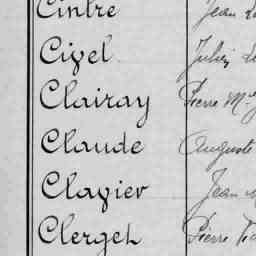 Cintre Jean
Civel Julien
Clairay Pierre M.
Claude Auguste
Clavier Jean
Clerget Pierre